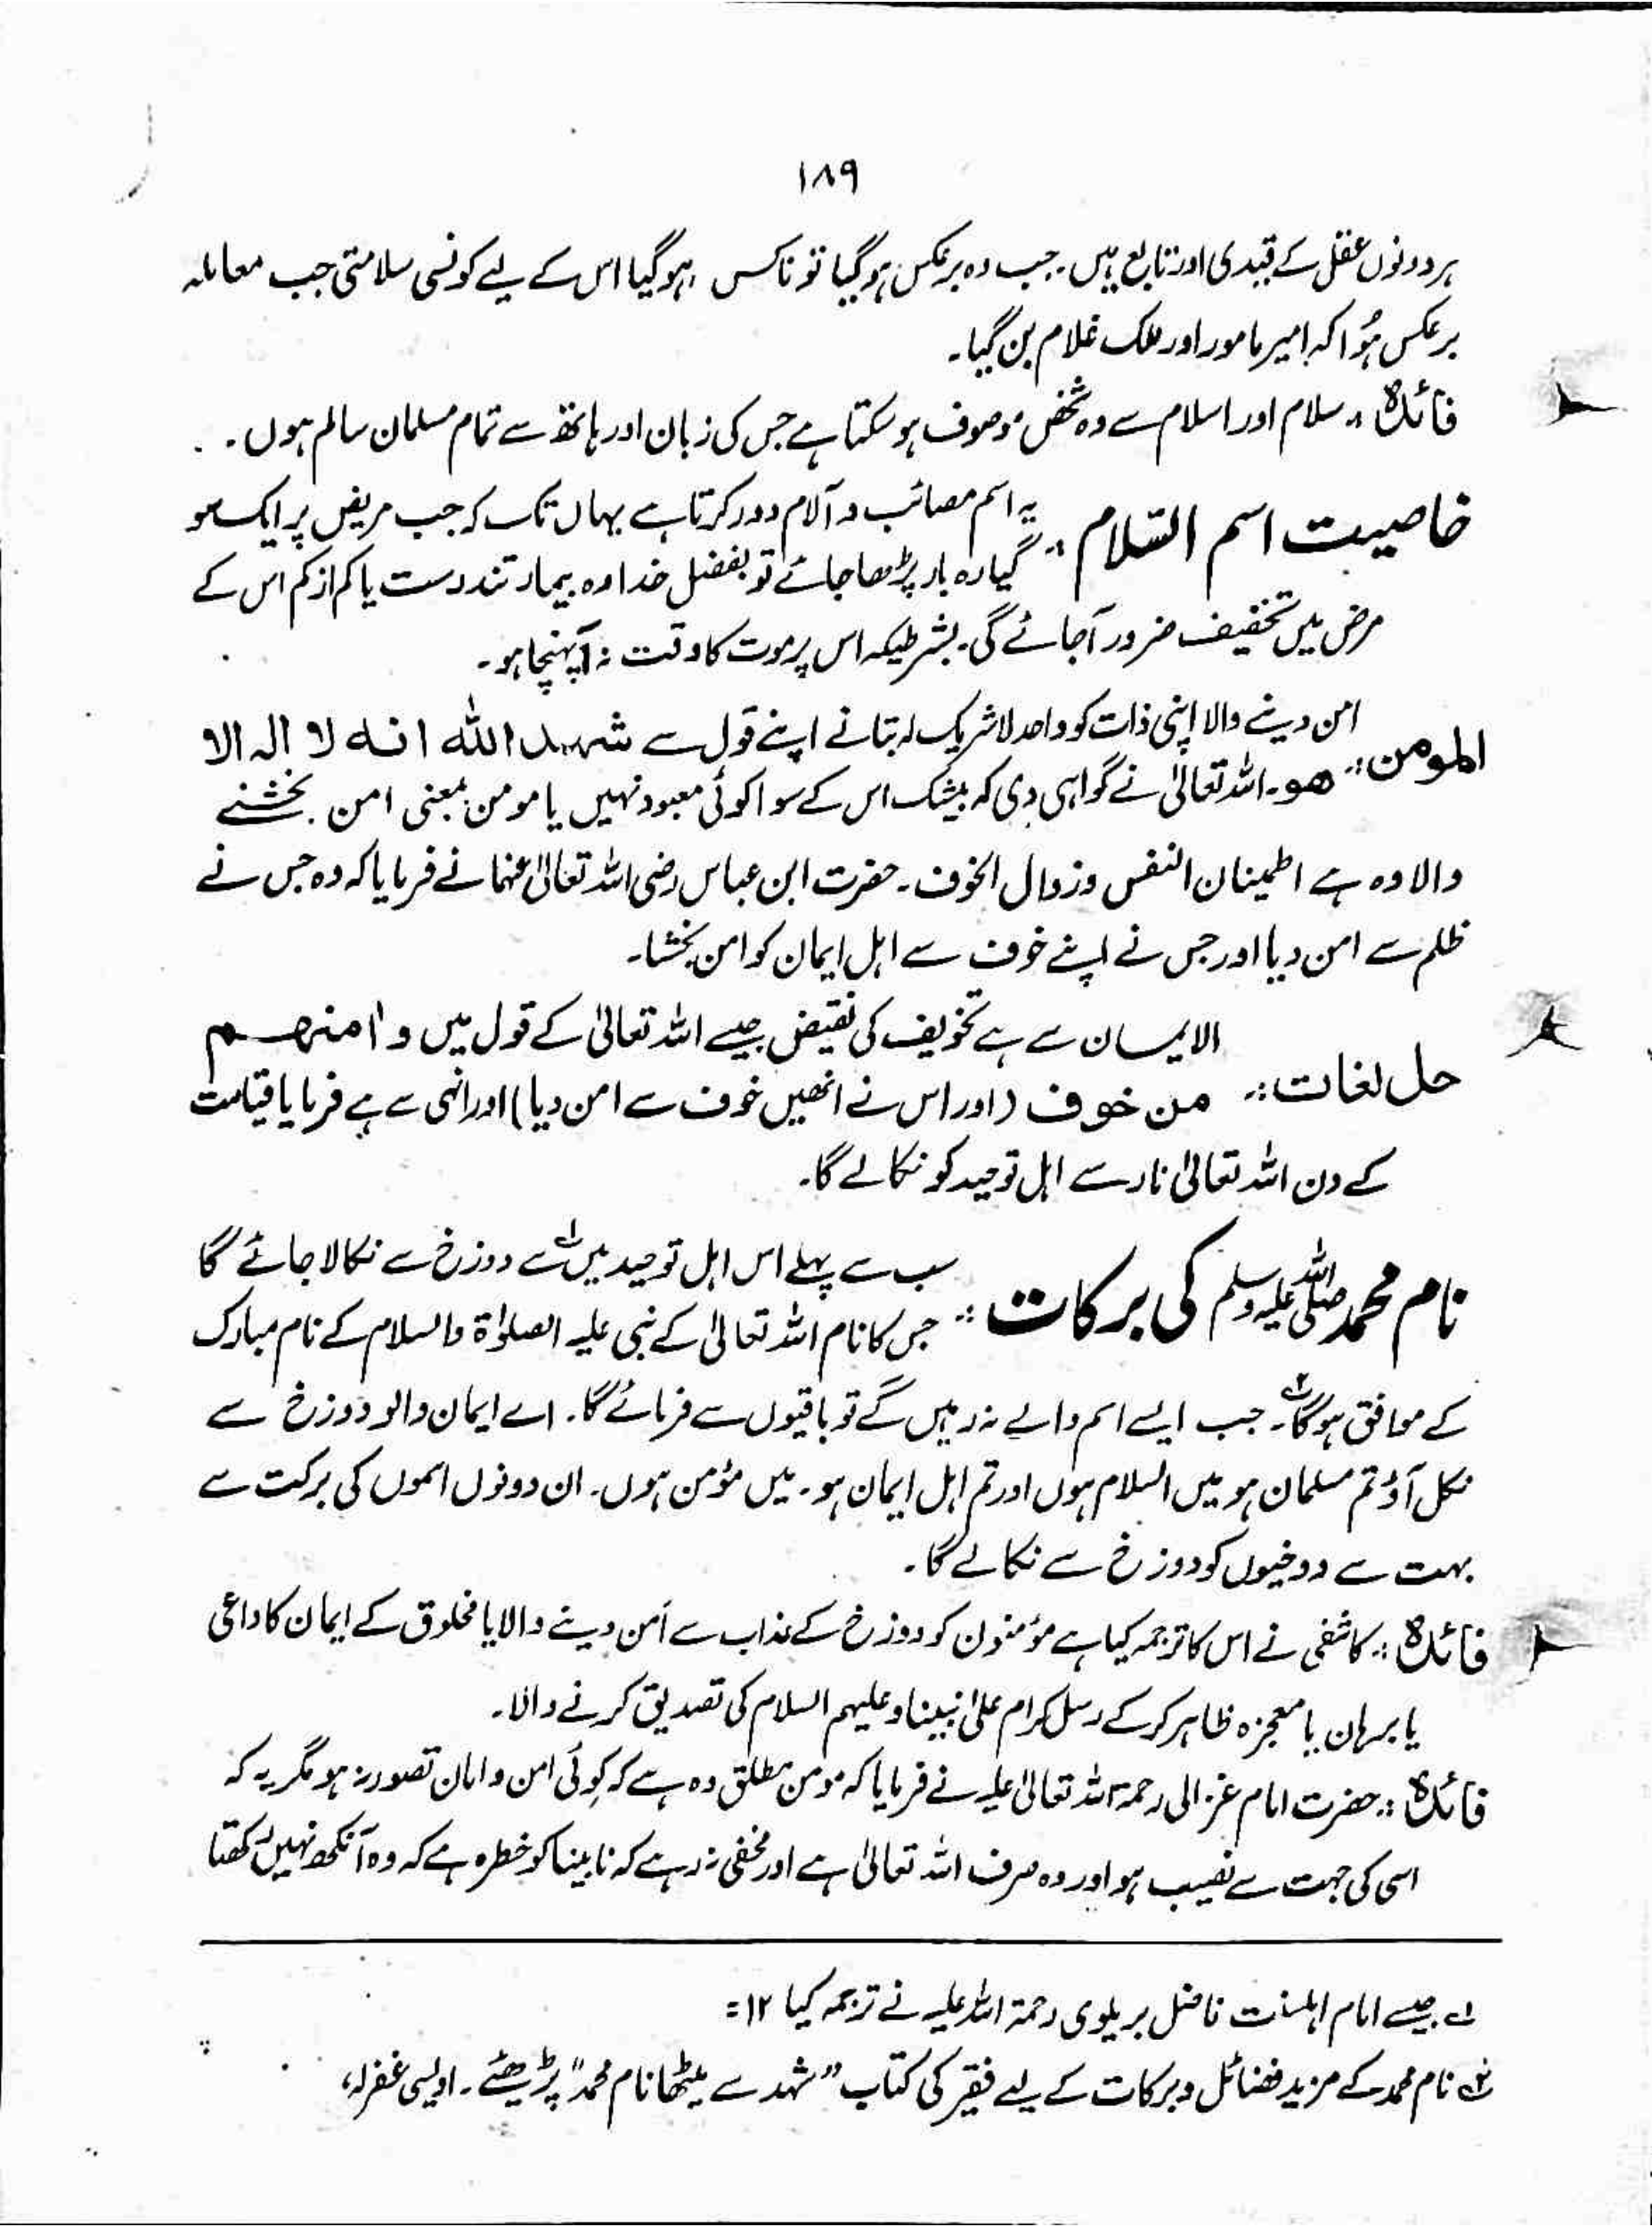 ۱۸۹
ہر دونوں عقل کے قیدی اور تابع ہیں۔ جب وہ برعکس ہو گیا تو ناکس ہو گیا اس کے لیے کونسی سلامتی جب معاملہ
برعکس ہُوا کہ امیر مامور اور ملک غلام بن گیا۔
فائدہ :۔ سلام اور اسلام سے وہ شخص موصوف ہو سکتا ہے جس کی زبان اور ہاتھ سے تمام مسلمان سالم ہوں۔
خاصیت اسم السّلام :۔ یہ اسم مصائب و آلام دور کرتا ہے یہاں تک کہ جب مریض پر ایک سو
گیارہ بار پڑھا جائے تو بفضل خدا وہ بیمار تندرست یا کم از کم اس کے
مرض میں تخفیف ضرور آجائے گی۔ بشرطیکہ اس پر موت کا وقت نہ آپہنچا ہو۔
المومن :۔ امن دینے والا اپنی ذات کو واحد لا شریک لہ بتانے اپنے قول سے شہد اللہ انہ لا الہ الا
ھو۔ اللہ تعالیٰ نے گواہی دی کہ بیشک اس کے سوا کوئی معبود نہیں یا مومن بمعنی امن بخشنے
والا وہ ہے اطمینان النفس وزوال الخوف۔ حضرت ابن عباس رضی اللہ تعالیٰ عنہما نے فرمایا کہ وہ جس نے
ظلم سے امن دیا اور جس نے اپنے خوف سے اہل ایمان کو امن بخشا۔
حل لغات :۔ الایمان سے ہے تخویف کی نقیض جیسے اللہ تعالیٰ کے قول میں وامنھم
من خوف (اور اس نے انھیں خوف سے امن دیا) اور انہی سے ہے فرمایا قیامت
کے دن اللہ تعالیٰ نار سے اہل توحید کو نکالے گا۔
نام محمد صلی اللہ علیہ وسلم کی برکات :۔ سب سے پہلے اس اہل توحید میں سے ؎۱ دوزخ سے نکالا جائے گا
جس کا نام اللہ تعالیٰ کے نبی علیہ الصلوٰۃ والسلام کے نام مبارک
کے موافق ہو گا ؎۲۔ جب ایسے اسم والے نہ رہیں گے تو باقیوں سے فرمائے گا۔ اے ایمان والو دوزخ سے
نکل آؤ تم مسلمان ہو میں السلام ہوں اور تم اہل ایمان ہو۔ میں مؤمن ہوں۔ ان دونوں اسموں کی برکت سے
بہت سے دوزخیوں کو دوزخ سے نکالے گا۔
فائدہ :۔ کاشفی نے اس کا ترجمہ کیا ہے مؤمنون کو دوزخ کے عذاب سے اَمن دینے والا یا مخلوق کے ایمان کا داعی
یا برہان یا معجزہ ظاہر کر کے رسل کرام علیٰ نبینا وعلیہم السلام کی تصدیق کرنے والا۔
فائدہ :۔ حضرت امام غزالی رحمۃ اللہ تعالیٰ علیہ نے فرمایا کہ مومن مطلق وہ ہے کہ کوئی امن و امان تصور نہ ہو مگر یہ کہ
اسی کی جہت سے نصیب ہو اور وہ صرف اللہ تعالیٰ ہے اور مخفی نہ رہے کہ نابینا کو خطرہ ہے کہ وہ آنکھ نہیں رکھتا
؎۱ جیسے امام اہلسنت فاضل بریلوی رحمۃ اللہ علیہ نے ترجمہ کیا ۱۲=
؎۲ نام محمد کے مزید فضائل و برکات کے لیے فقیر کی کتاب "شہد سے میٹھا نام محمد" پڑھیئے۔ اویسی غفرلہ،